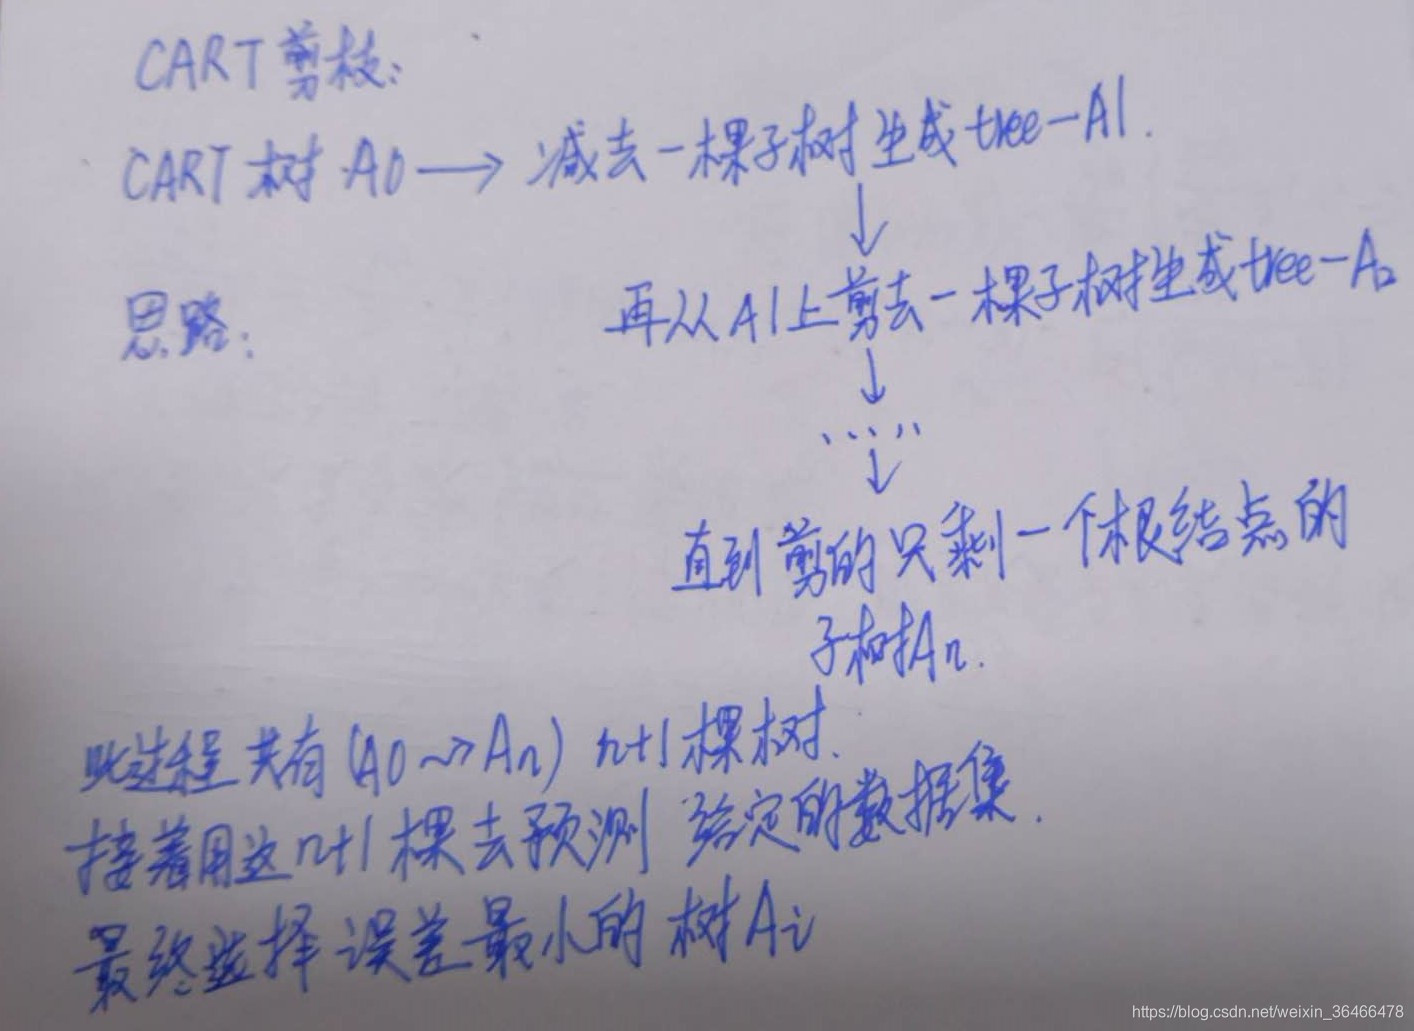 CART剪枝:
CART树 A0 → 减去一棵子树生成tree-A1.
↓
思路:
再从A1上剪去一棵子树生成tree-A2
↓
.....
↓
直到剪的只剩一个根结点的
子树An.
此过程共有(A0~>An) n+1棵树.
接着用这n+1棵去预测 给定的数据集.
最终选择误差最小的树Ai
https://blog.csdn.net/weixin_36466478